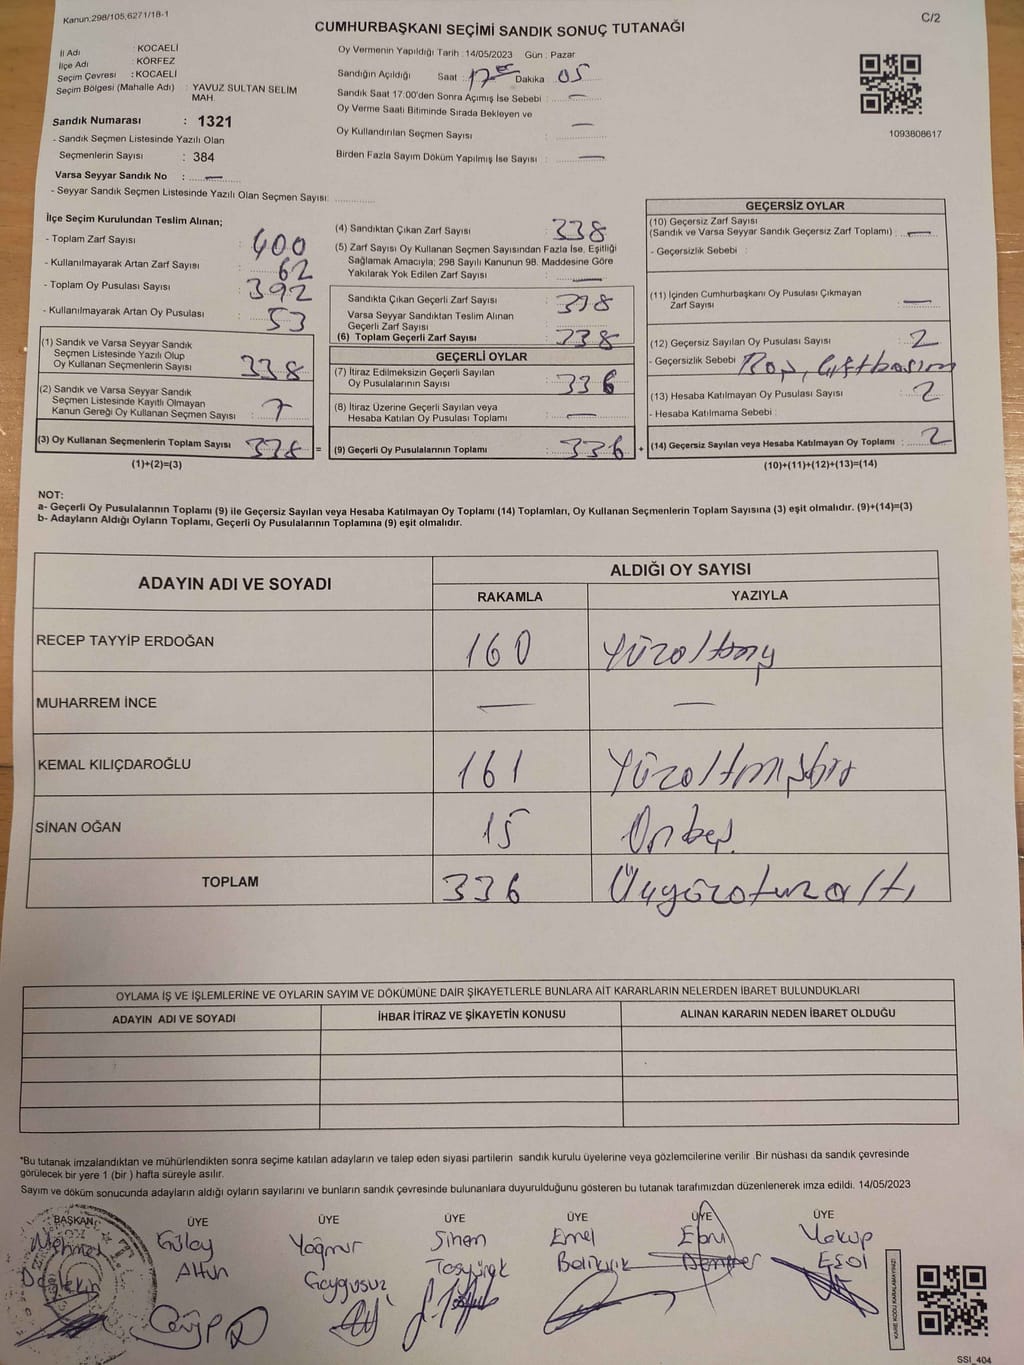 Kanun:298/105,6271/18-1
C/2
CUMHURBAŞKANI SEÇİMİ SANDIK SONUÇ TUTANAĞI
İl Adı : KOCAELİ
İlçe Adı : KÖRFEZ
Seçim Çevresi : KOCAELİ
Seçim Bölgesi (Mahalle Adı) : YAVUZ SULTAN SELİM
MAH.
Sandık Numarası : 1321
- Sandık Seçmen Listesinde Yazılı Olan
Seçmenlerin Sayısı : 384
Varsa Seyyar Sandık No : —
- Seyyar Sandık Seçmen Listesinde Yazılı Olan Seçmen Sayısı:
Oy Vermenin Yapıldığı Tarih : 14/05/2023 Gün : Pazar
Sandığın Açıldığı Saat : 17 Dakika 05
Sandık Saat 17:00'den Sonra Açımış İse Sebebi : —
Oy Verme Saati Bitiminde Sırada Bekleyen ve
Oy Kullandırılan Seçmen Sayısı : —
Birden Fazla Sayım Döküm Yapılmış İse Sayısı : —
1093808617
İlçe Seçim Kurulundan Teslim Alınan;
- Toplam Zarf Sayısı : 400
- Kullanılmayarak Artan Zarf Sayısı : 62
- Toplam Oy Pusulası Sayısı : 392
- Kullanılmayarak Artan Oy Pusulası : 53
(1) Sandık ve Varsa Seyyar Sandık
Seçmen Listesinde Yazılı Olup
Oy Kullanan Seçmenlerin Sayısı : 338
(2) Sandık ve Varsa Seyyar Sandık
Seçmen Listesinde Kayıtlı Olmayan
Kanun Gereği Oy Kullanan Seçmen Sayısı :
(3) Oy Kullanan Seçmenlerin Toplam Sayısı : 338 =
(1)+(2)=(3)
(4) Sandıktan Çıkan Zarf Sayısı : 338
(5) Zarf Sayısı Oy Kullanan Seçmen Sayısından Fazla İse, Eşitliği
Sağlamak Amacıyla; 298 Sayılı Kanunun 98. Maddesine Göre
Yakılarak Yok Edilen Zarf Sayısı : —
Sandıkta Çıkan Geçerli Zarf Sayısı : 338
Varsa Seyyar Sandıktan Teslim Alınan
Geçerli Zarf Sayısı :
(6) Toplam Geçerli Zarf Sayısı : 338
GEÇERLİ OYLAR
(7) İtiraz Edilmeksizin Geçerli Sayılan
Oy Pusulalarının Sayısı : 336
(8) İtiraz Üzerine Geçerli Sayılan veya
Hesaba Katılan Oy Pusulası Toplamı : —
(9) Geçerli Oy Pusulalarının Toplamı : 336 +
GEÇERSİZ OYLAR
(10) Geçersiz Zarf Sayısı
(Sandık ve Varsa Seyyar Sandık Geçersiz Zarf Toplamı) : —
- Geçersizlik Sebebi :
(11) İçinden Cumhurbaşkanı Oy Pusulası Çıkmayan
Zarf Sayısı : —
(12) Geçersiz Sayılan Oy Pusulası Sayısı : 2
- Geçersizlik Sebebi : çift basım
(13) Hesaba Katılmayan Oy Pusulası Sayısı : 2
- Hesaba Katılmama Sebebi :
(14) Geçersiz Sayılan veya Hesaba Katılmayan Oy Toplamı : 2
(10)+(11)+(12)+(13)=(14)
NOT:
a- Geçerli Oy Pusulalarının Toplamı (9) ile Geçersiz Sayılan veya Hesaba Katılmayan Oy Toplamı (14) Toplamları, Oy Kullanan Seçmenlerin Toplam Sayısına (3) eşit olmalıdır. (9)+(14)=(3)
b- Adayların Aldığı Oyların Toplamı, Geçerli Oy Pusulalarının Toplamına (9) eşit olmalıdır.
ADAYIN ADI VE SOYADI
ALDIĞI OY SAYISI
RAKAMLA YAZIYLA
RECEP TAYYİP ERDOĞAN 160 Yüzaltmış
MUHARREM İNCE — —
KEMAL KILIÇDAROĞLU 161 Yüzaltmışbir
SİNAN OĞAN 15 Onbeş
TOPLAM 336 Üçyüzotuzaltı
OYLAMA İŞ VE İŞLEMLERİNE VE OYLARIN SAYIM VE DÖKÜMÜNE DAİR ŞİKAYETLERLE BUNLARA AİT KARARLARIN NELERDEN İBARET BULUNDUKLARI
ADAYIN ADI VE SOYADI İHBAR İTİRAZ VE ŞİKAYETİN KONUSU ALINAN KARARIN NEDEN İBARET OLDUĞU
*Bu tutanak imzalandıktan ve mühürlendikten sonra seçime katılan adayların ve talep eden siyasi partilerin sandık kurulu üyelerine veya gözlemcilerine verilir .Bir nüshası da sandık çevresinde
görülecek bir yere 1 (bir ) hafta süreyle asılır.
Sayım ve döküm sonucunda adayların aldığı oyların sayılarını ve bunların sandık çevresinde bulunanlara duyurulduğunu gösteren bu tutanak tarafımızdan düzenlenerek imza edildi. 14/05/2023
BAŞKAN ÜYE ÜYE ÜYE ÜYE ÜYE ÜYE
Mehmet Gülay Yağmur Sinan Emel Ebru Yakup
Altun Gaygusuz Taşyürek Balıkçık Demirer
KARE KODU KARALAMAYINIZ!
SSI_404